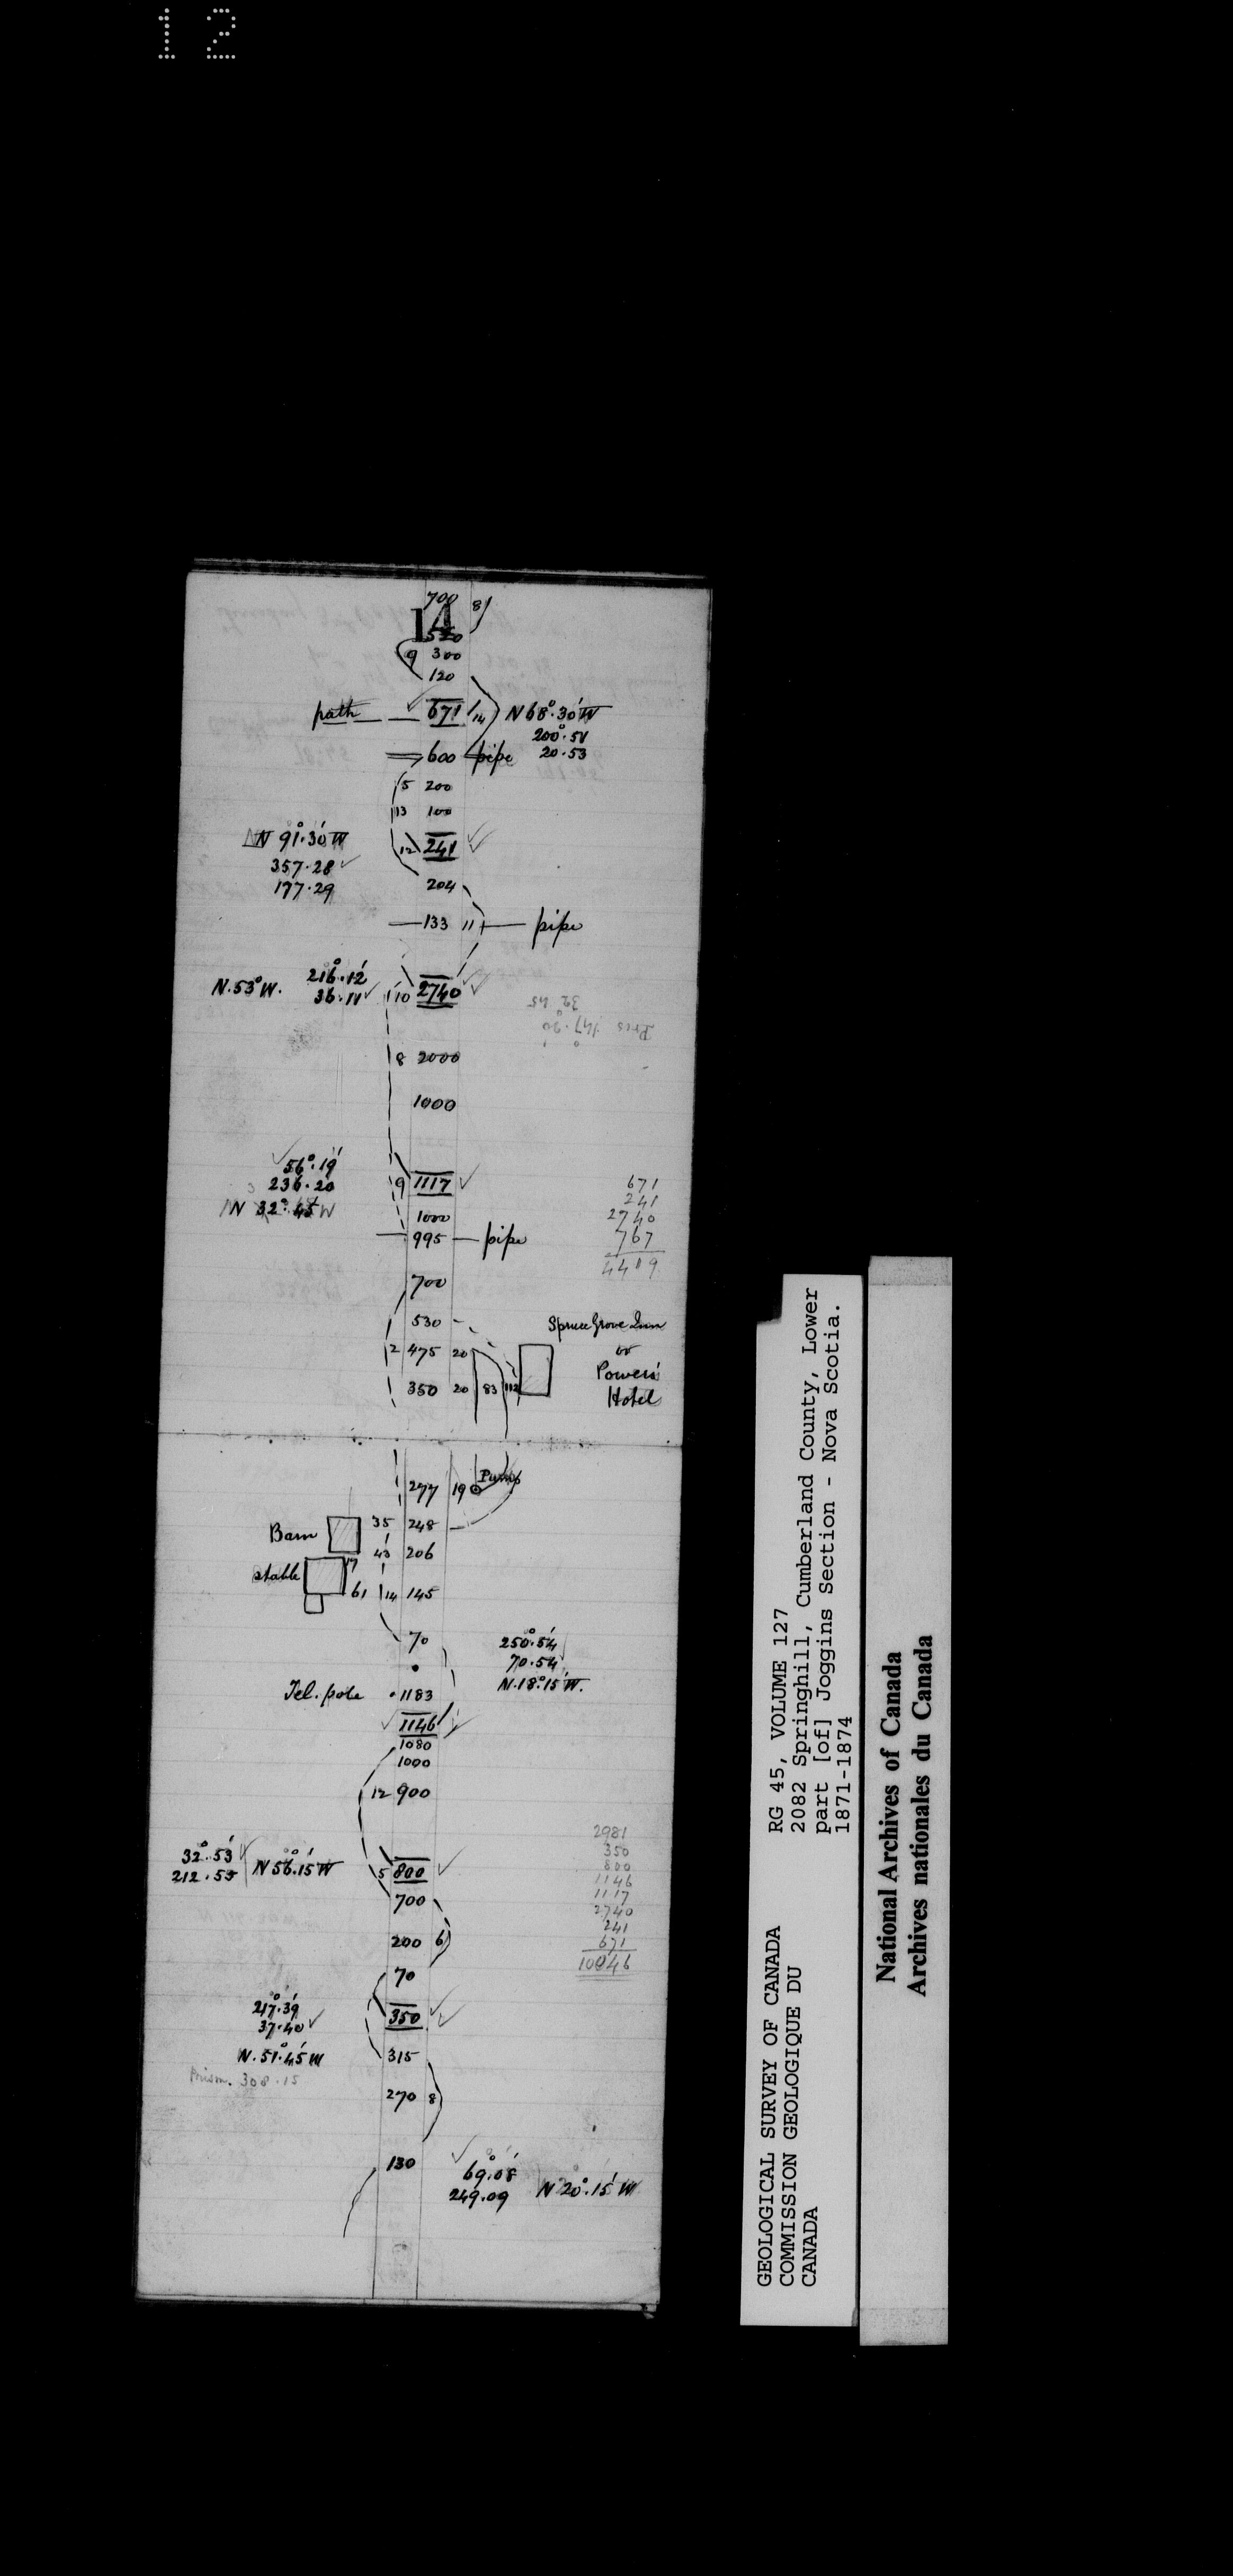 12
700 8
14
520
9 300
120
path 671 14 N 68°.30' W
200°.51
600 pipe 20.53
5 200
13 100
N 91°.30' W 12 241
357.28
177.29 204
133 11 pipe
216°.12'
N.53° W. 36.11 10 2740
8 2000
1000
56°.19' 9 1117 671
236.20 241
N 32°.45' W 1000 2740
995 pipe 767
4419
700
530 Spruce Grove Inn
2 475 20 or
350 20 83 112 Powers'
Hotel
277 19 Pump
Barn 35 248
43 206
stable 17
61 14 145
70 250°.54'
70.54
N.18°.15' W.
Tel. pole 1183
1146
1080
1000
12 900
2981
32°.53' 350
212.55 N 56°.15' W 5 800 800
1146
700 1117
2740
200 6 241
671
70 10046
217°.39' 350
37.40
N.51°.45' W 315
Prism. 308.15
270 8
130 69°.08'
249.09 N 20°.15' W
GEOLOGICAL SURVEY OF CANADA
COMMISSION GEOLOGIQUE DU
CANADA
RG 45, VOLUME 127
2082 Springhill, Cumberland County, Lower
part [of] Joggins Section - Nova Scotia.
1871-1874
National Archives of Canada
Archives nationales du Canada